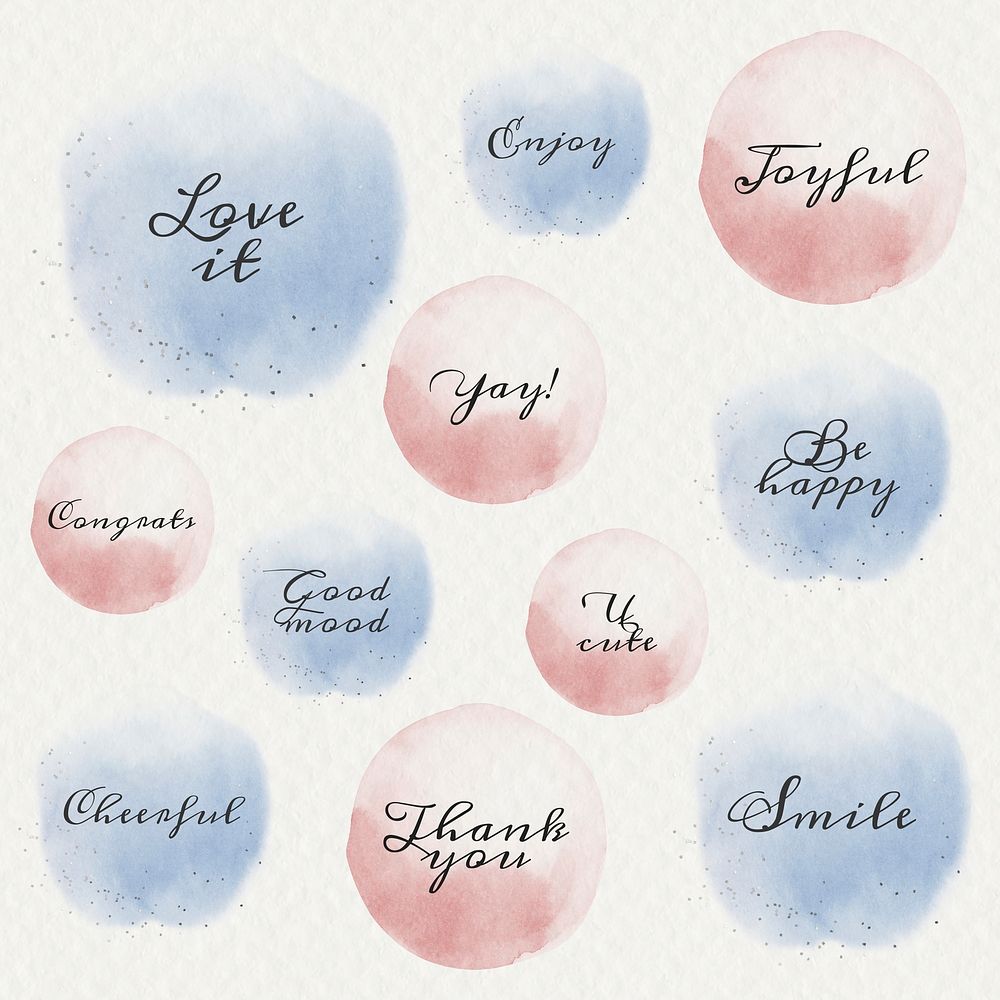 Love
it
Enjoy
Joyful
Yay!
Be
happy
Congrats
Good
mood
U
cute
Cheerful
Thank
you
Smile